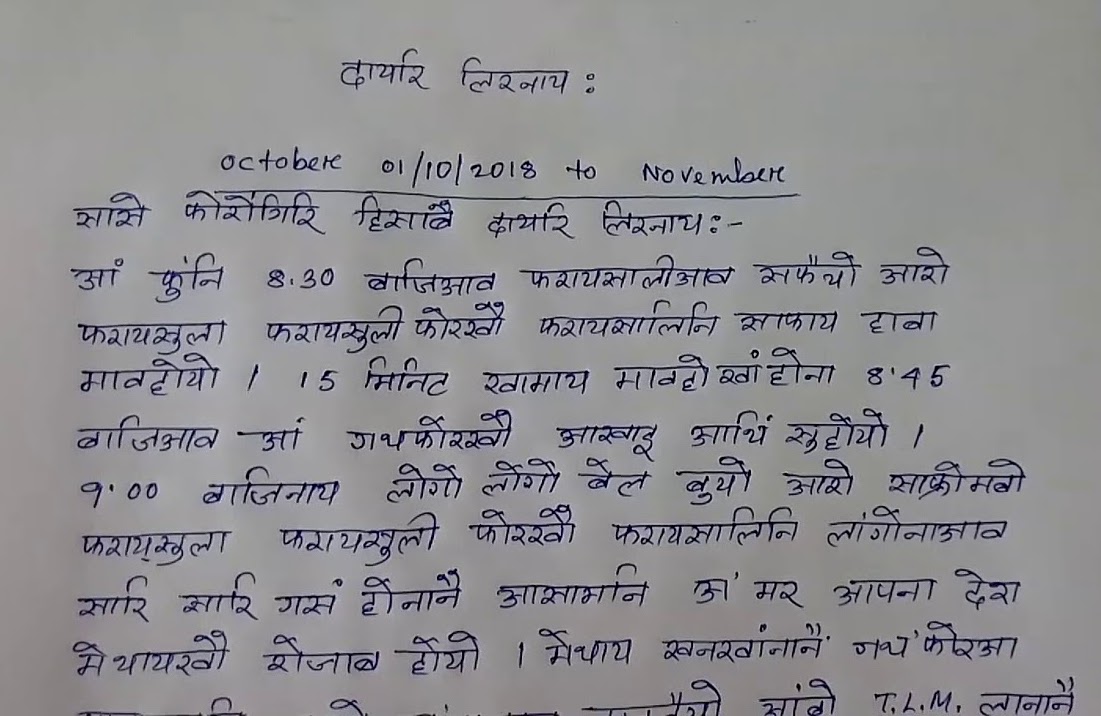 दायरि लिरनाय :
octobere 01/10/2018 to Novembere
सासे फोरोंगिरि हिसाबै दायरि लिरनाय :-
आं फुंनि 8.30 बाजिआव फरायसालिआव सफैयो आरो
फरायसुला फरायसुली फोरखौ फरायसालिनि साफाय हाबा
मावहोयो । 15 मिनिट खामाय मावहो खांहोना 8'45
बाजिआव आं गथफोरखौ आखाइ आथिं सुहोयो ।
9'00 बाजिनाय लोगो लोगो बेल बुयो आरो साफ्रोमबो
फरायसुला फरायसुली फोरखौ फरायसालिनि लांगोनाआव
सारि सारि गसं होनानै आसामनि अ' मर आपना देश
मेथायखौ रोजाब होयो । मेथाय खनखांनानै गथ'फोरआ
सांबो T.L.M. लानानै